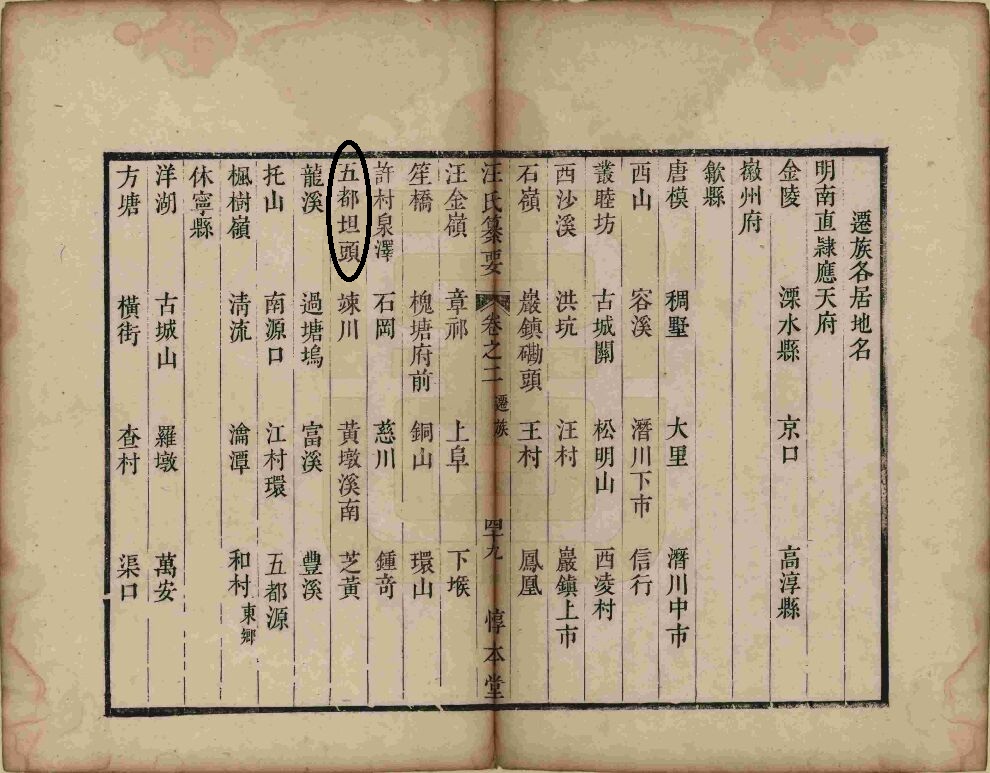 遷族各居地名
明南直隸應天府
金陵 溧水縣 京口 高淳縣
徽州府
歙縣
唐模 稠墅 大里 潛川中市
西山 容溪 潛川下市 信行
叢睦坊 古城關 松明山 西凌村
西沙溪 洪坑 汪村 巖鎮上市
石嶺 巖鎮磡頭 王村 鳳凰
汪氏纂要 卷之二 遷族 四十九 惇本堂
汪金嶺 章祁 上阜 下堠
笙橋 槐塘府前 銅山 環山
許村泉澤 石岡 慈川 鍾奇
五都坦頭 竦川 黃墩溪南 芝黃
龍溪 過塘塢 富溪 豐溪
托山 南源口 江村環 五都源
楓樹嶺 清流 瀹潭 和村東鄉
休寧縣
洋湖 古城山 羅墩 萬安
方塘 橫街 杳村 渠口